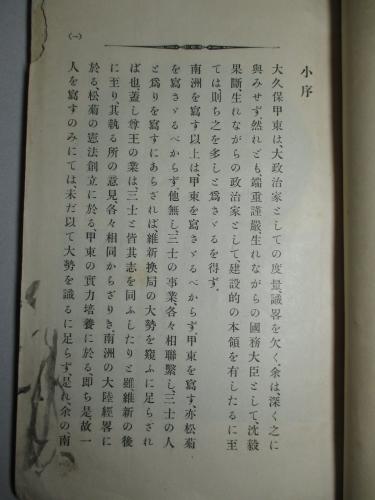 小序
大久保甲東は、大政治家としての度量、識畧を欠く、余は、深く之に
與みせず、然れども、端重謹嚴、生れながらの國務大臣として、沈毅
果斷、生れながらの政治家として、建設的の本領を有したるに至
ては則ち之を多しと爲さゞるを得ず。
南洲を寫す以上は、甲東を寫さゞるべからず、甲東を寫す、亦松菊
を寫さゞるべからず、他無し、三士の事業、各々相聯繫し、三士の人
と爲りを寫すにあらざれば、維新換局の大勢を窺ふに足らざれ
ば也、蓋し尊王の業は、三士と皆其志を同ふしたりと雖、維新の後
に至り、其執る所の意見、各々相同からざりき、南洲の大陸經畧に
於る、松菊の憲法創立に於る、甲東の實力培養に於る、即ち是、故一
人を寫すのみにては、未だ以て大勢を識るに足らず、是れ、余の南
(一)